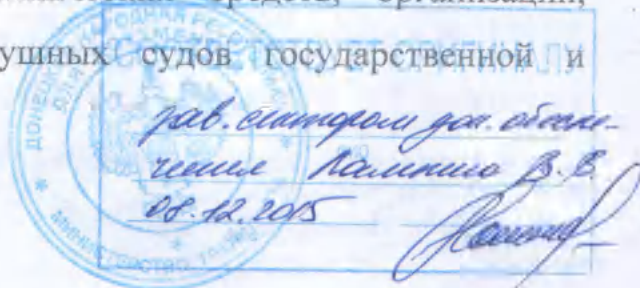 средств, организации,
ушных судов государственной и
СООТВЕТСТВУЕТ ОРИГИНАЛУ
зав. сектором док. обеспе-
чения В. В.
08.12.2015
ДОНЕЦКАЯ НАРОДНАЯ РЕСПУБЛИКА
МИНИСТЕРСТВО